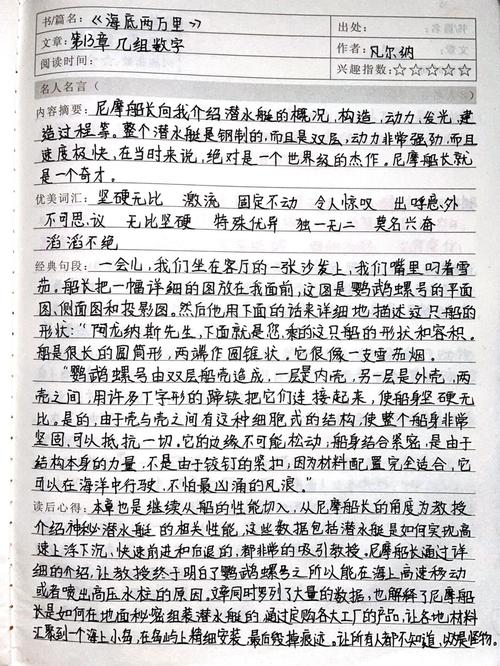 书/篇名：《海底两万里》 出处：
文章：第13章 几组数字 作者：凡尔纳
阅读时间： 兴趣指数：☆☆☆☆☆
名人名言（ ）
内容摘要：尼摩船长向我介绍潜水艇的概况，构造，动力，发光，建
造过程等。整个潜水艇是钢制的，而且是双层，动力非常强劲，而且
速度极快，在当时来说，绝对是一个世界级的杰作。尼摩船长就
是一个奇才。
优美词汇：坚硬无比 激流 固定不动 令人惊叹 出呼意外
不可思议 无比坚硬 特殊优异 独一无二 莫名兴奋
滔滔不绝
经典句段：一会儿，我们坐在客厅的一张沙发上，我们嘴里叼着雪
茄。船长把一幅详细的图放在我面前，这图是鹦鹉螺号的平面
图、侧面图和投影图。然后他用下面的话来详细地描述这只船的
形状：“阿龙纳斯先生，下面就是您乘的这只船的形状和容积。
船是很长的圆筒形，两端作圆锥状，它很像一支雪茄烟。
“鹦鹉螺号由双层船壳造成，一层是内壳，另一层是外壳，两
壳之间，用许多丁字形的蹄铁把它们连接起来，使船身坚硬无
比。是的，由于壳与壳之间有这种细胞式的结构，使整个船身非常
坚固，可以抵抗一切。它的边缘不可能松动，船身结合紧密，是由于
结构本身的力量，不是由于铰钉的紧扣，因为材料配置完全适合，它
可以在海洋中行驶，不怕最凶涌的风浪。”
读后心得：本章也是继续从船的性能切入，从尼摩船长的角度为教授
介绍神秘潜水艇的相关性能，这些数据包括潜水艇是如何实现高
速上浮下沉，快速前进和后退的，都非常的吸引教授。尼摩船长通过详
细的介绍，让教授终于明白了鹦鹉螺号之所以能在海上高速移动
或者喷出高压水柱的原因。文章同时罗列了大量的数据，也解释了尼摩船
长是如何在地面秘密组装潜水艇的，通过定购各大工厂的产品，让各地材料
汇聚到一个海上小岛，在岛屿上精细安装，最后毁掉痕迹。让所有人都不知道，以为是怪物。